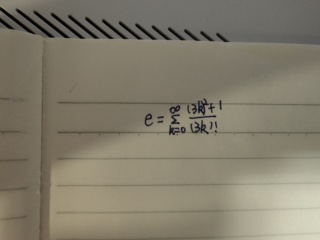 e = ∑_{k=0}^{∞} \frac{(3k)^2+1}{(3k)!}